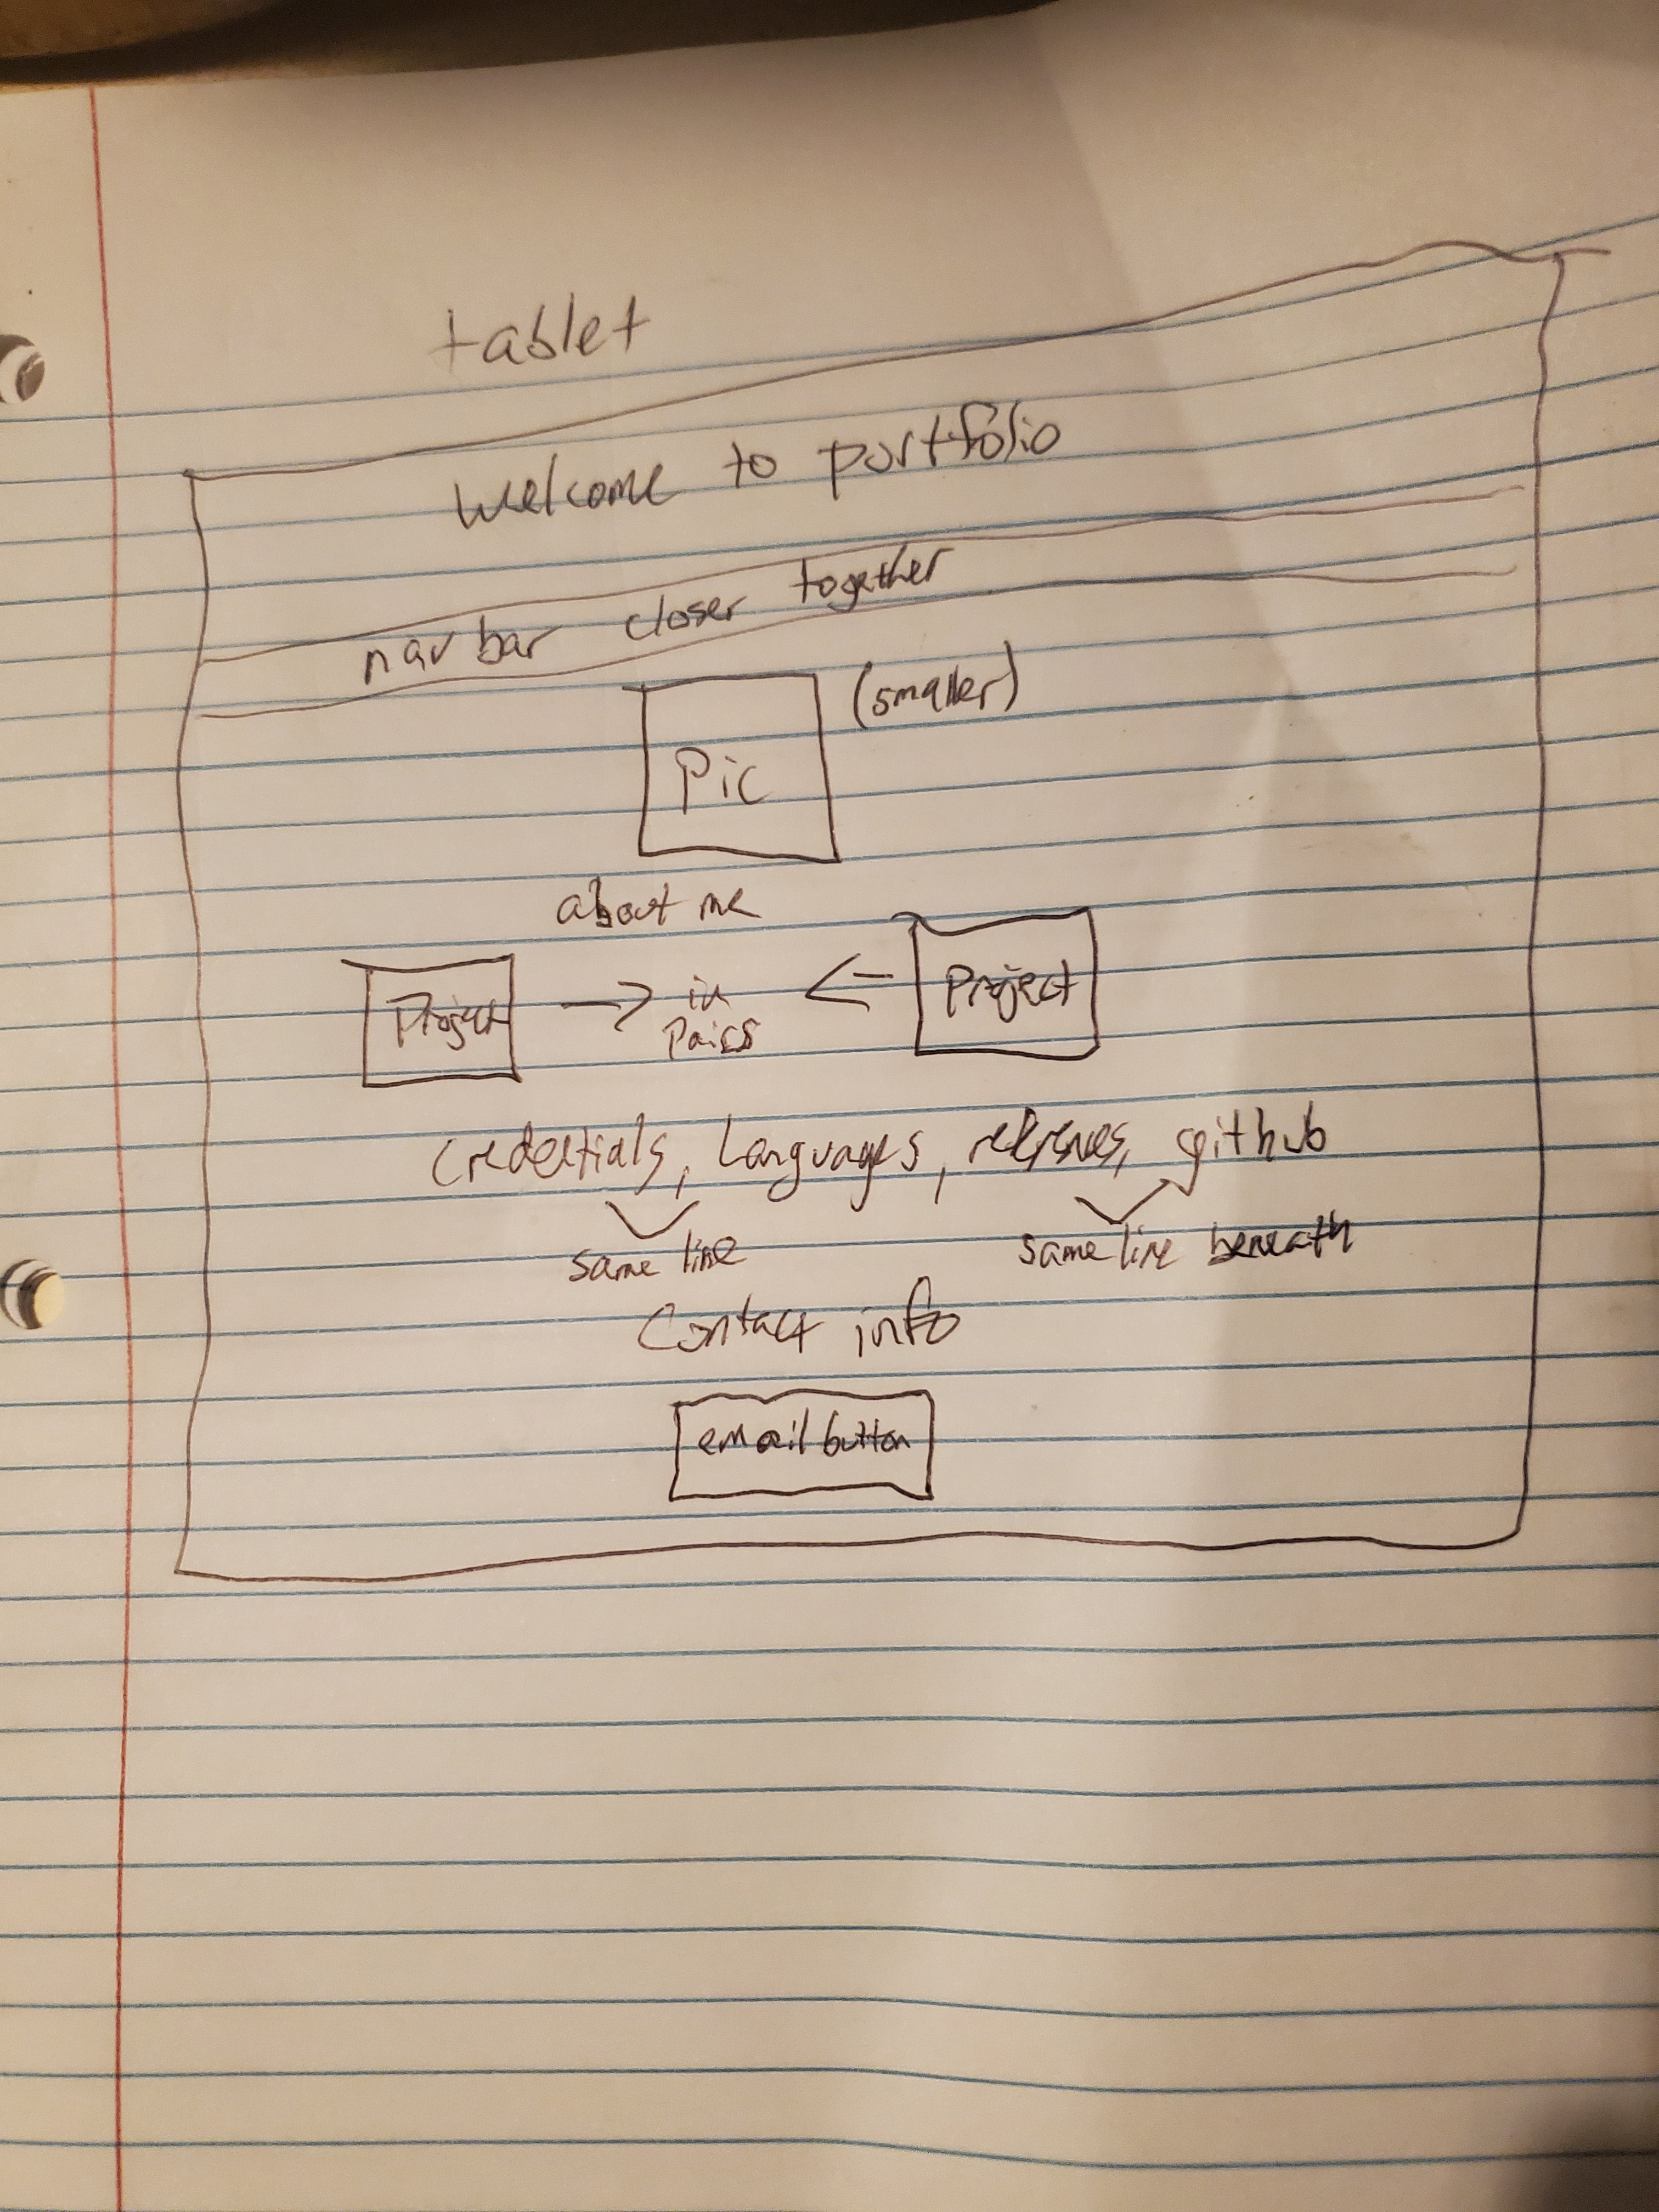 tablet
welcome to portfolio
nav bar closer together
Pic (smaller)
about me
Project in Project
Pairs
Credentials, Languages, references, github
same line same line beneath
Contact info
email button